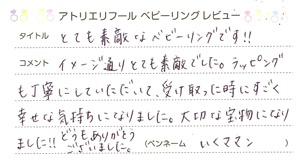 アトリエリフール ベビーリング レビュー
タイトル とても素敵なベビーリングです!!
コメント イメージ通りとても素敵でした。ラッピング
も丁寧にしていただいて、受け取った時にすごく
幸せな気持ちになりました。大切な宝物になり
ました!! どうもありがとう
ございました。 (ペンネーム いくママン )